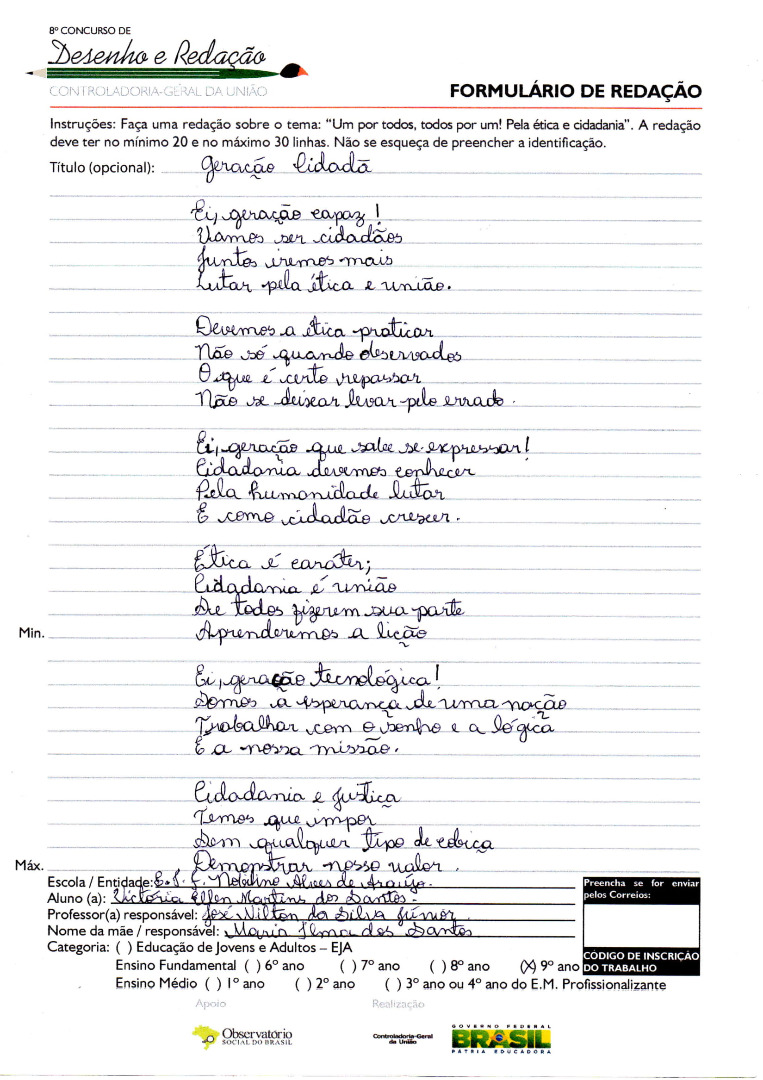 8º CONCURSO DE
Desenho e Redação
CONTROLADORIA-GERAL DA UNIÃO
FORMULÁRIO DE REDAÇÃO
Instruções: Faça uma redação sobre o tema: “Um por todos, todos por um! Pela ética e cidadania”. A redação
deve ter no mínimo 20 e no máximo 30 linhas. Não se esqueça de preencher a identificação.
Título (opcional): Geração Cidadã
Ei, geração capaz!
Vamos ser cidadãos
Juntos iremos mais
Lutar pela ética e união.
Devemos a ética praticar
Não só quando observados
O que é certo repassar
Não se deixar levar pelo errado.
Ei, geração que sabe se expressar!
Cidadania devemos conhecer
Pela humanidade lutar
E como cidadão crescer.
Ética é caráter;
Cidadania é união
Se todos fizerem sua parte
Min. Aprenderemos a lição
Ei, geração tecnológica!
Somos a esperança de uma nação
Trabalhar com o sonho e a lógica
E a nossa missão.
Cidadania e justiça
Temos que impor
Sem qualquer tipo de cobiça
Máx. Demonstrar nosso valor.
Escola / Entidade: Alves de Araújo.
Aluno (a): Victória Ellen Martins dos Santos.
Professor(a) responsável: José Nilton da Silva Júnior
Nome da mãe / responsável: Maria Ilma dos Santos
Categoria: ( ) Educação de Jovens e Adultos – EJA
Ensino Fundamental ( ) 6º ano ( ) 7º ano ( ) 8º ano (X) 9º ano
Ensino Médio ( ) 1º ano ( ) 2º ano ( ) 3º ano ou 4º ano do E.M. Profissionalizante
Preencha se for enviar
pelos Correios:
CÓDIGO DE INSCRIÇÃO
DO TRABALHO
Apoio
Realização
Observatório
SOCIAL DO BRASIL
Controladoria-Geral
da União
GOVERNO FEDERAL
BRASIL
PÁTRIA EDUCADORA